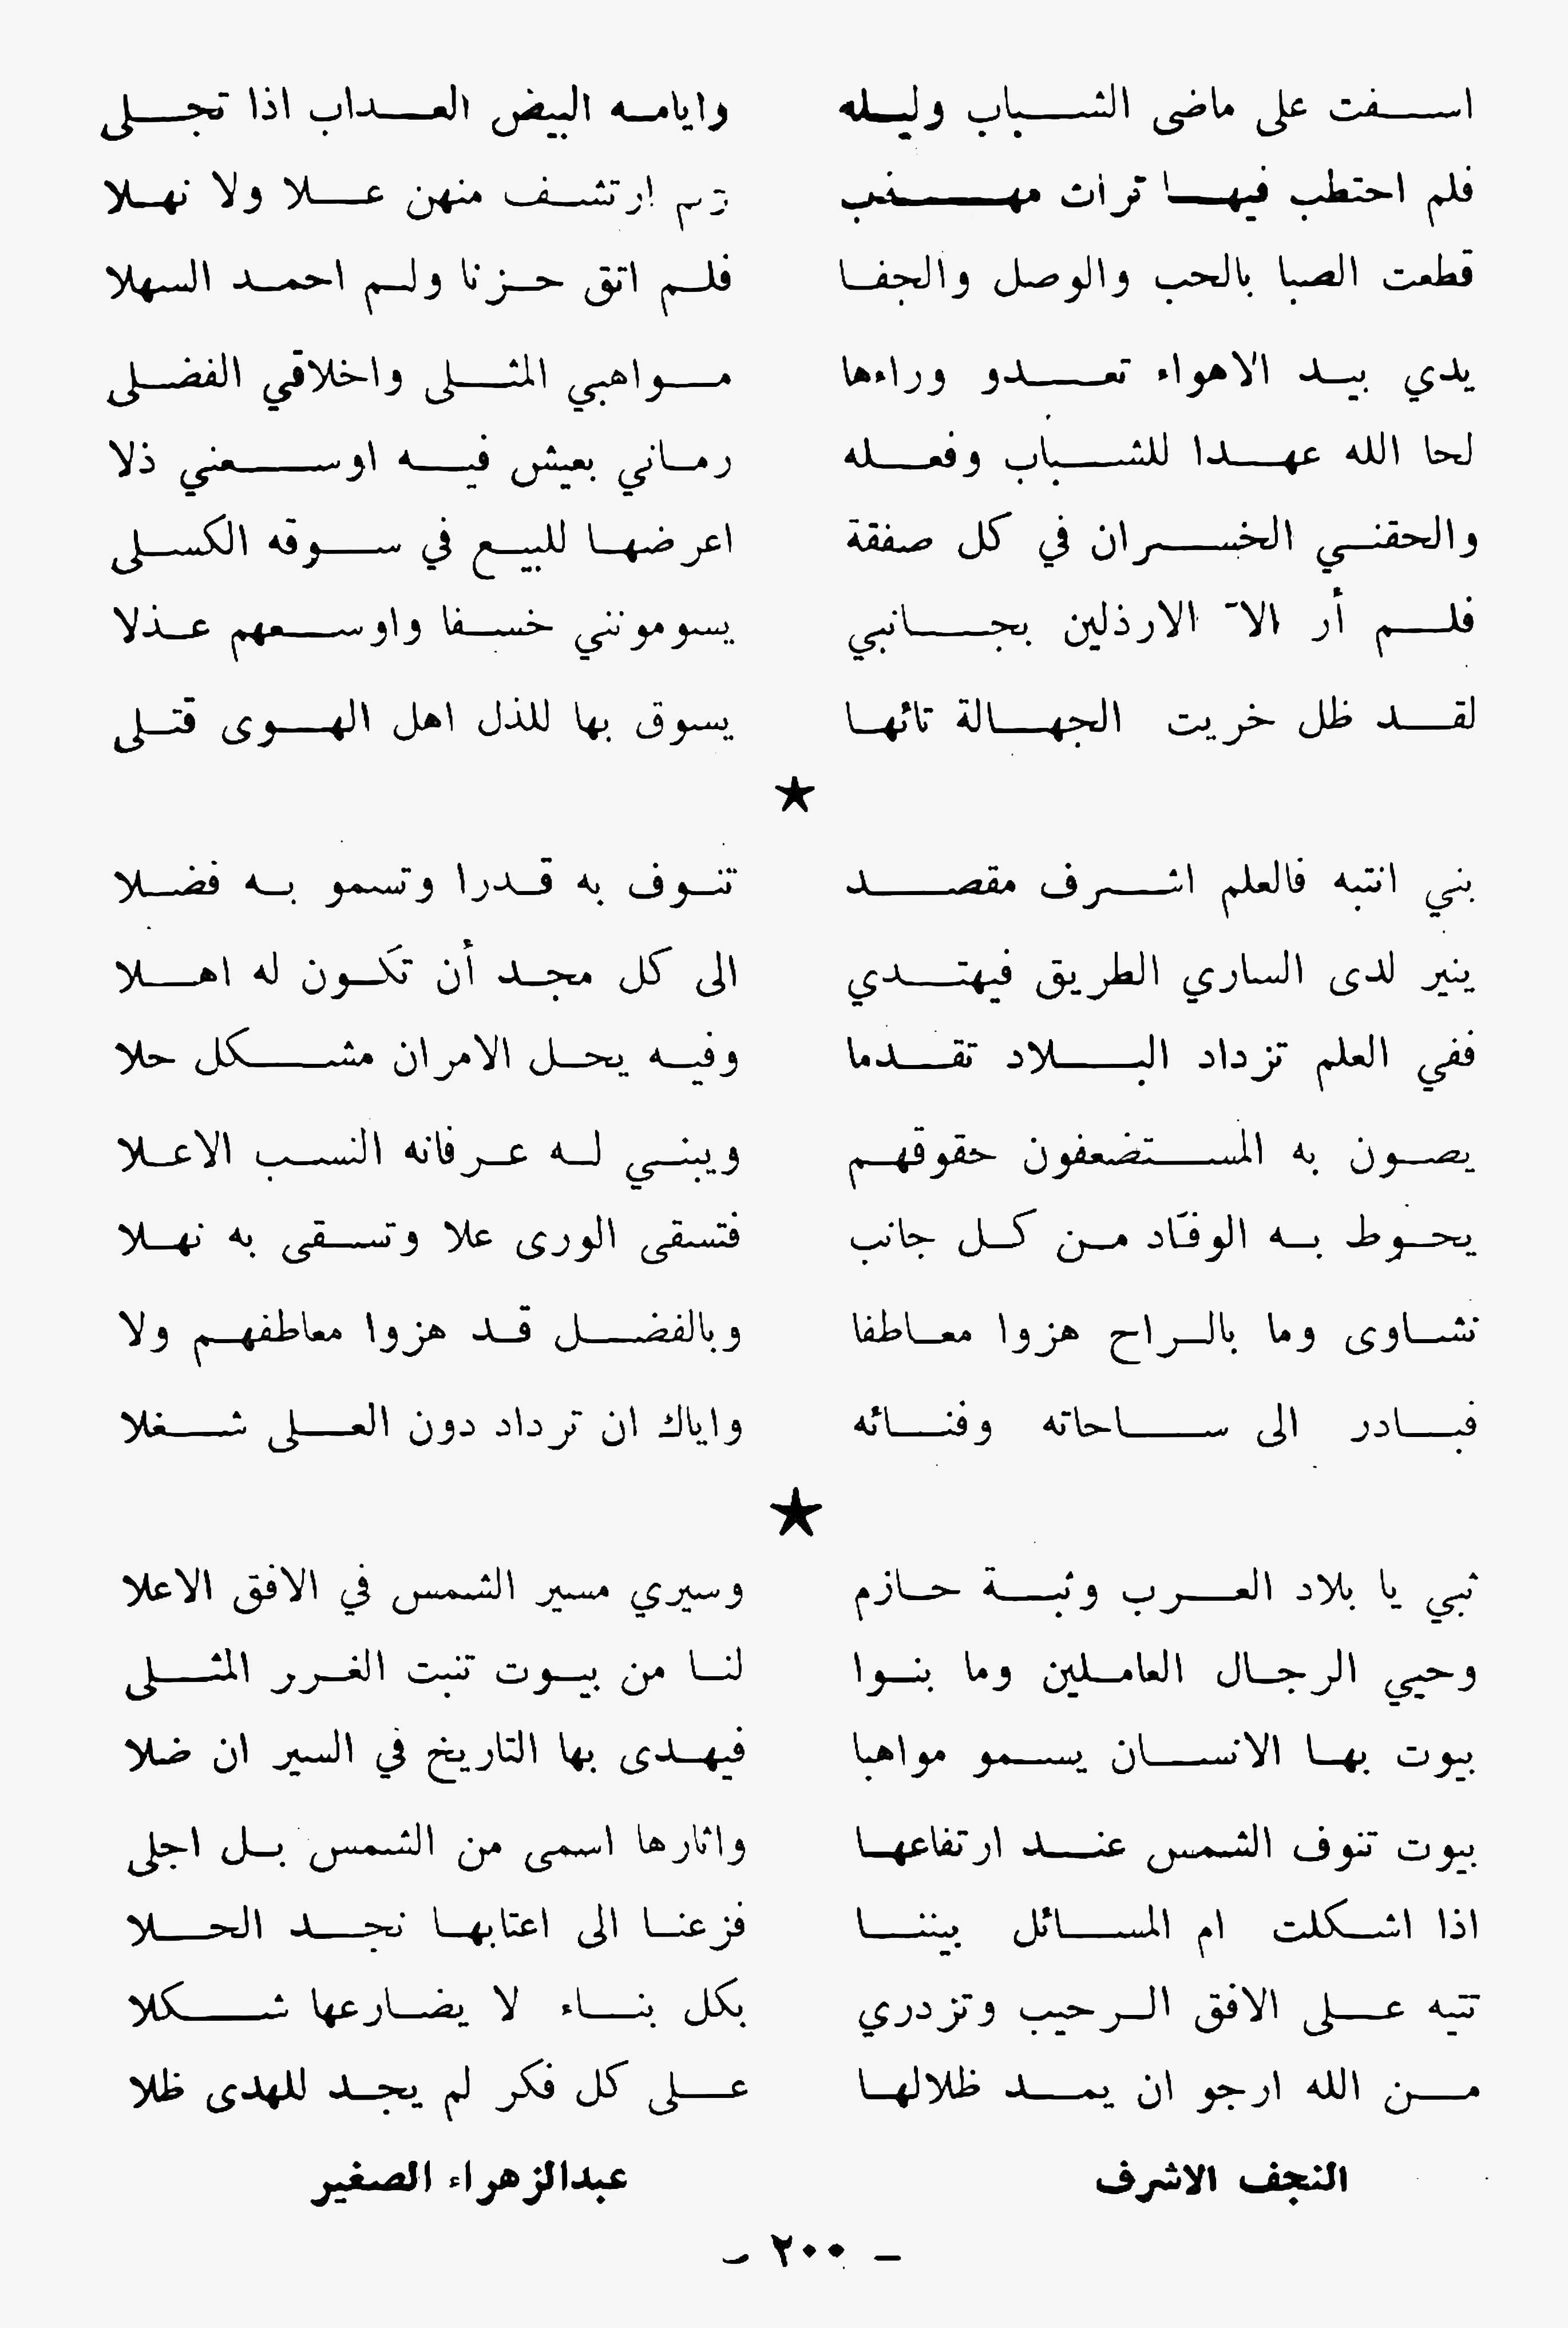 اسفت على ماضى الشباب وليله وايامه البيض العداب اذا تجلى
فلم احتطب فيها تراث مهذب ارتشف منهن علا ولا نهلا
قطعت الصبا بالحب والوصل والجفا فلم اتق حزنا ولم احمد السهلا
يدي بيد الاهواء تعدو وراءها مواهبي المثلى واخلاقي الفضلى
لحا الله عهدا للشباب وفعله رماني بعيش فيه اوسعني ذلا
والحقني الخسران في كل صفقة اعرضها للبيع في سوقه الكسلى
فلم أر الا الارذلين بجانبي يسومونني خسفا واوسعهم عذلا
لقد ظل خريت الجهالة تائها يسوق بها للذل اهل الهوى قتلى
★
بني انتبه فالعلم اشرف مقصد تنوف به قدرا وتسمو به فضلا
ينير لدى الساري الطريق فيهتدي الى كل مجد أن تكون له اهلا
ففي العلم تزداد البلاد تقدما وفيه يحل الامران مشكل حلا
يصون به المستضعفون حقوقهم ويبني له عرفانه النسب الاعلا
يحوط به الوفاد من كل جانب فتسقى الورى علا وتسقى به نهلا
نشاوى وما بالراح هزوا معاطفا وبالفضل قد هزوا معاطفهم ولا
فبادر الى ساحاته وفنائه واياك ان ترداد دون العلى شغلا
★
ثبي يا بلاد العرب وثبة حازم وسيري مسير الشمس في الافق الاعلا
وحيي الرجال العاملين وما بنوا لنا من بيوت تنبت الغرر المثلى
بيوت بها الانسان يسمو مواهبا فيهدى بها التاريخ في السير ان ضلا
بيوت تنوف الشمس عند ارتفاعها واثارها اسمى من الشمس بل اجلى
اذا اشكلت ام المسائل بيننا فزعنا الى اعتابها نجد الحلا
تتيه على الافق الرحيب وتزدري بكل بناء لا يضارعها شكلا
من الله ارجو ان يمد ظلالها على كل فكر لم يجد للهدى ظلا
النجف الاشرف عبدالزهراء الصغير
- ٢٠٠ -